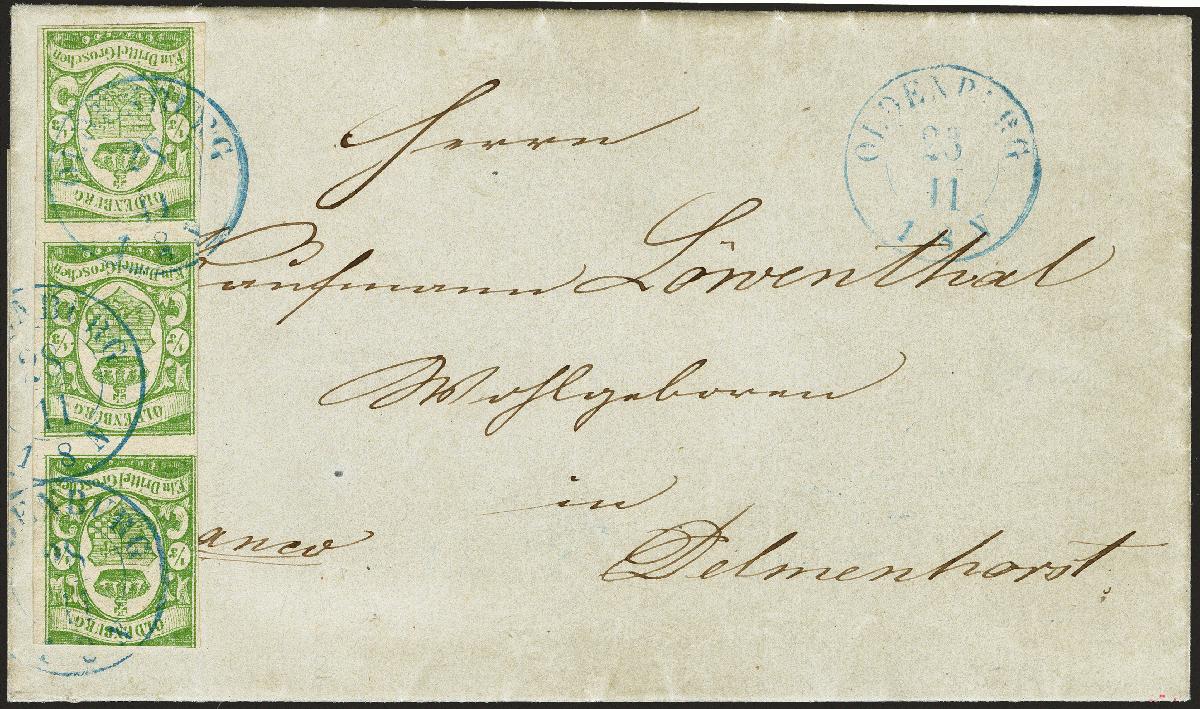 Herrn
Kaufmann Löwenthal
Wohlgeboren
in
Delmenhorst.
anco
OLDENBURG
23
11
1 8 N
Ein Drittel Groschen
1/3 1/3
OLDENBURG
Ein Drittel Groschen
1/3 1/3
OLDENBURG
Ein Drittel Groschen
1/3 1/3
OLDENBURG
BURG
11
1 8 N